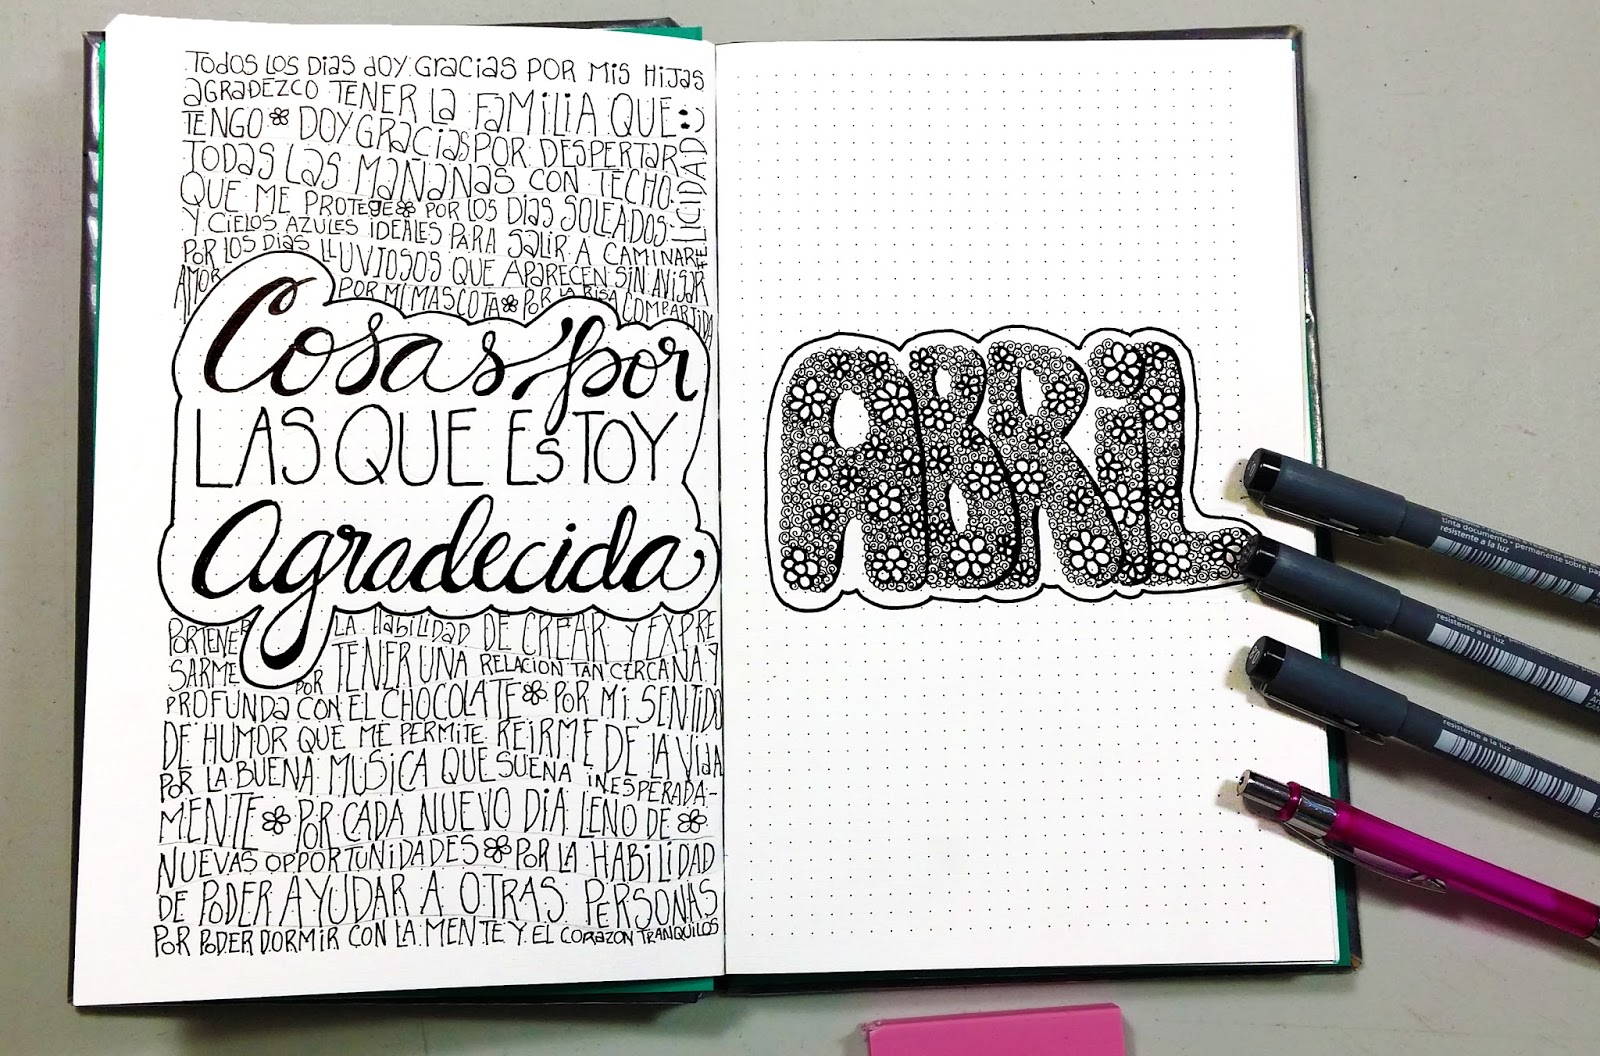 TODOS LOS DIAS DOY GRACIAS POR MIS HIJAS
AGRADEZCO TENER LA FAMILIA QUE
TENGO DOY GRACIAS POR DESPERTAR
TODAS LAS MAÑANAS CON TECHO
QUE ME PROTEGE POR LOS DIAS SOLEADOS
Y CIELOS AZULES IDEALES PARA SALIR A CAMINAR
POR LOS DIAS LLUVIOSOS QUE APARECEN SIN AVISAR
AMOR POR MI MASCOTA POR LA RISA COMPARTIDA
Cosas por
LAS QUE ESTOY
Agradecida
POR TENER LA HABILIDAD DE CREAR Y EXPRE
SARME POR TENER UNA RELACION TAN CERCANA Y
PROFUNDA CON EL CHOCOLATE POR MI SENTIDO
DE HUMOR QUE ME PERMITE REIRME DE LA VIDA
POR LA BUENA MUSICA QUE SUENA INESPERADA-
MENTE POR CADA NUEVO DIA LLENO DE
NUEVAS OPPORTUNIDADES POR LA HABILIDAD
DE PODER AYUDAR A OTRAS PERSONAS
POR PODER DORMIR CON LA MENTE Y EL CORAZON TRANQUILOS
ABRIL
tinta documento • permanente sobre pap
resistente a la luz
resistente a la luz
resistente a la luz